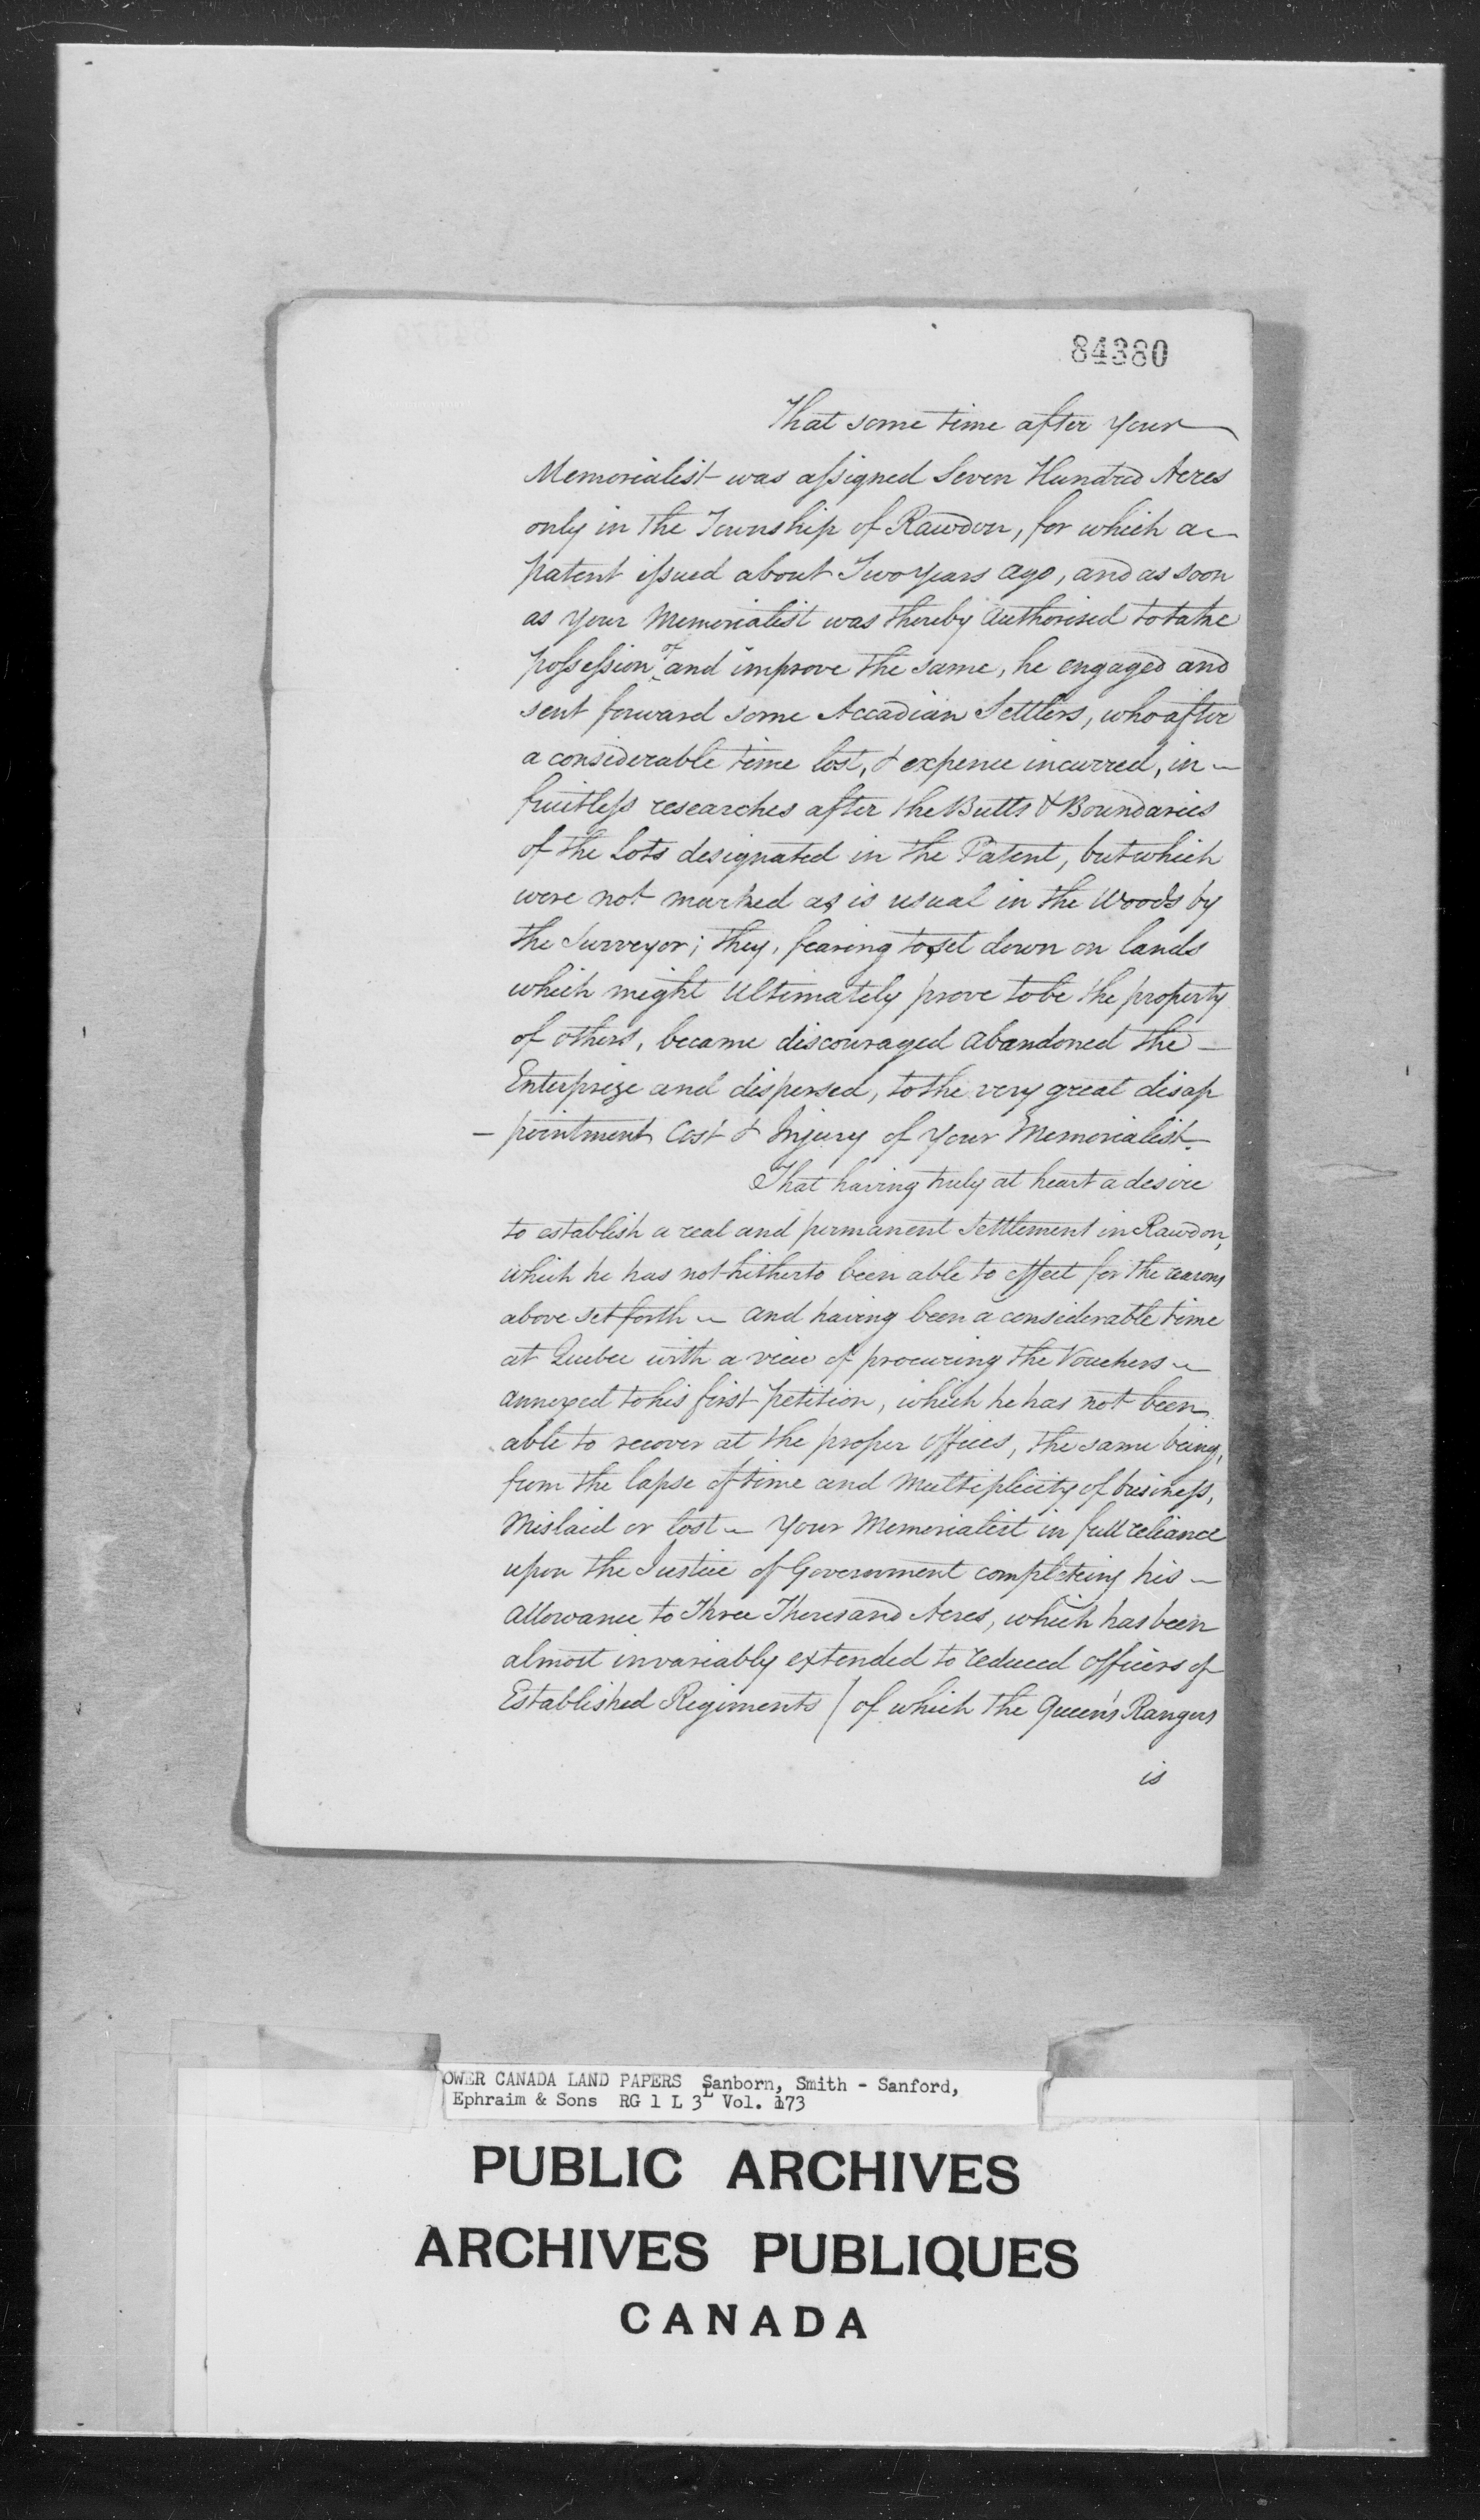 84380
That some time after your
Memorialist was assigned Seven Hundred Acres
only in the Township of Rawdon, for which a
patent issued about Two years ago, and as soon
as your Memorialist was thereby authorised to take
possession of and improve the same, he engaged and
sent forward some Accadian Settlers, who after
a considerable time lost, & expence incurred, in
fruitless researches after the Butts & Boundaries
of the Lots designated in the Patent, but which
were not marked as is usual in the Woods by
the Surveyor; they, fearing to set down on lands
which might Ultimately prove to be the property
of others, became discouraged abandoned the
Enterprize and dispersed, to the very great disap
-pointment Cost & Injury of your Memorialist.
That having truly at heart a desire
to establish a real and permanent Settlement in Rawdon,
which he has not hitherto been able to effect for the reasons
above set forth and having been a considerable time
at Quebec with a view of procuring the Vouchers
annexed to his first petition, which he has not been
able to recover at the proper Offices, the same being,
from the lapse of time and Multiplicity of business,
Mislaid or lost - Your Memorialist in full reliance
upon the Justice of Government completeing his
allowance to Three Thousand Acres, which has been
almost invariably extended to reduced officers of
Established Regiments / of which the Queen's Rangers
is
OWER CANADA LAND PAPERS Sanborn, Smith - Sanford,
Ephraim & Sons RG 1 L 3L Vol. 173
PUBLIC ARCHIVES
ARCHIVES PUBLIQUES
CANADA